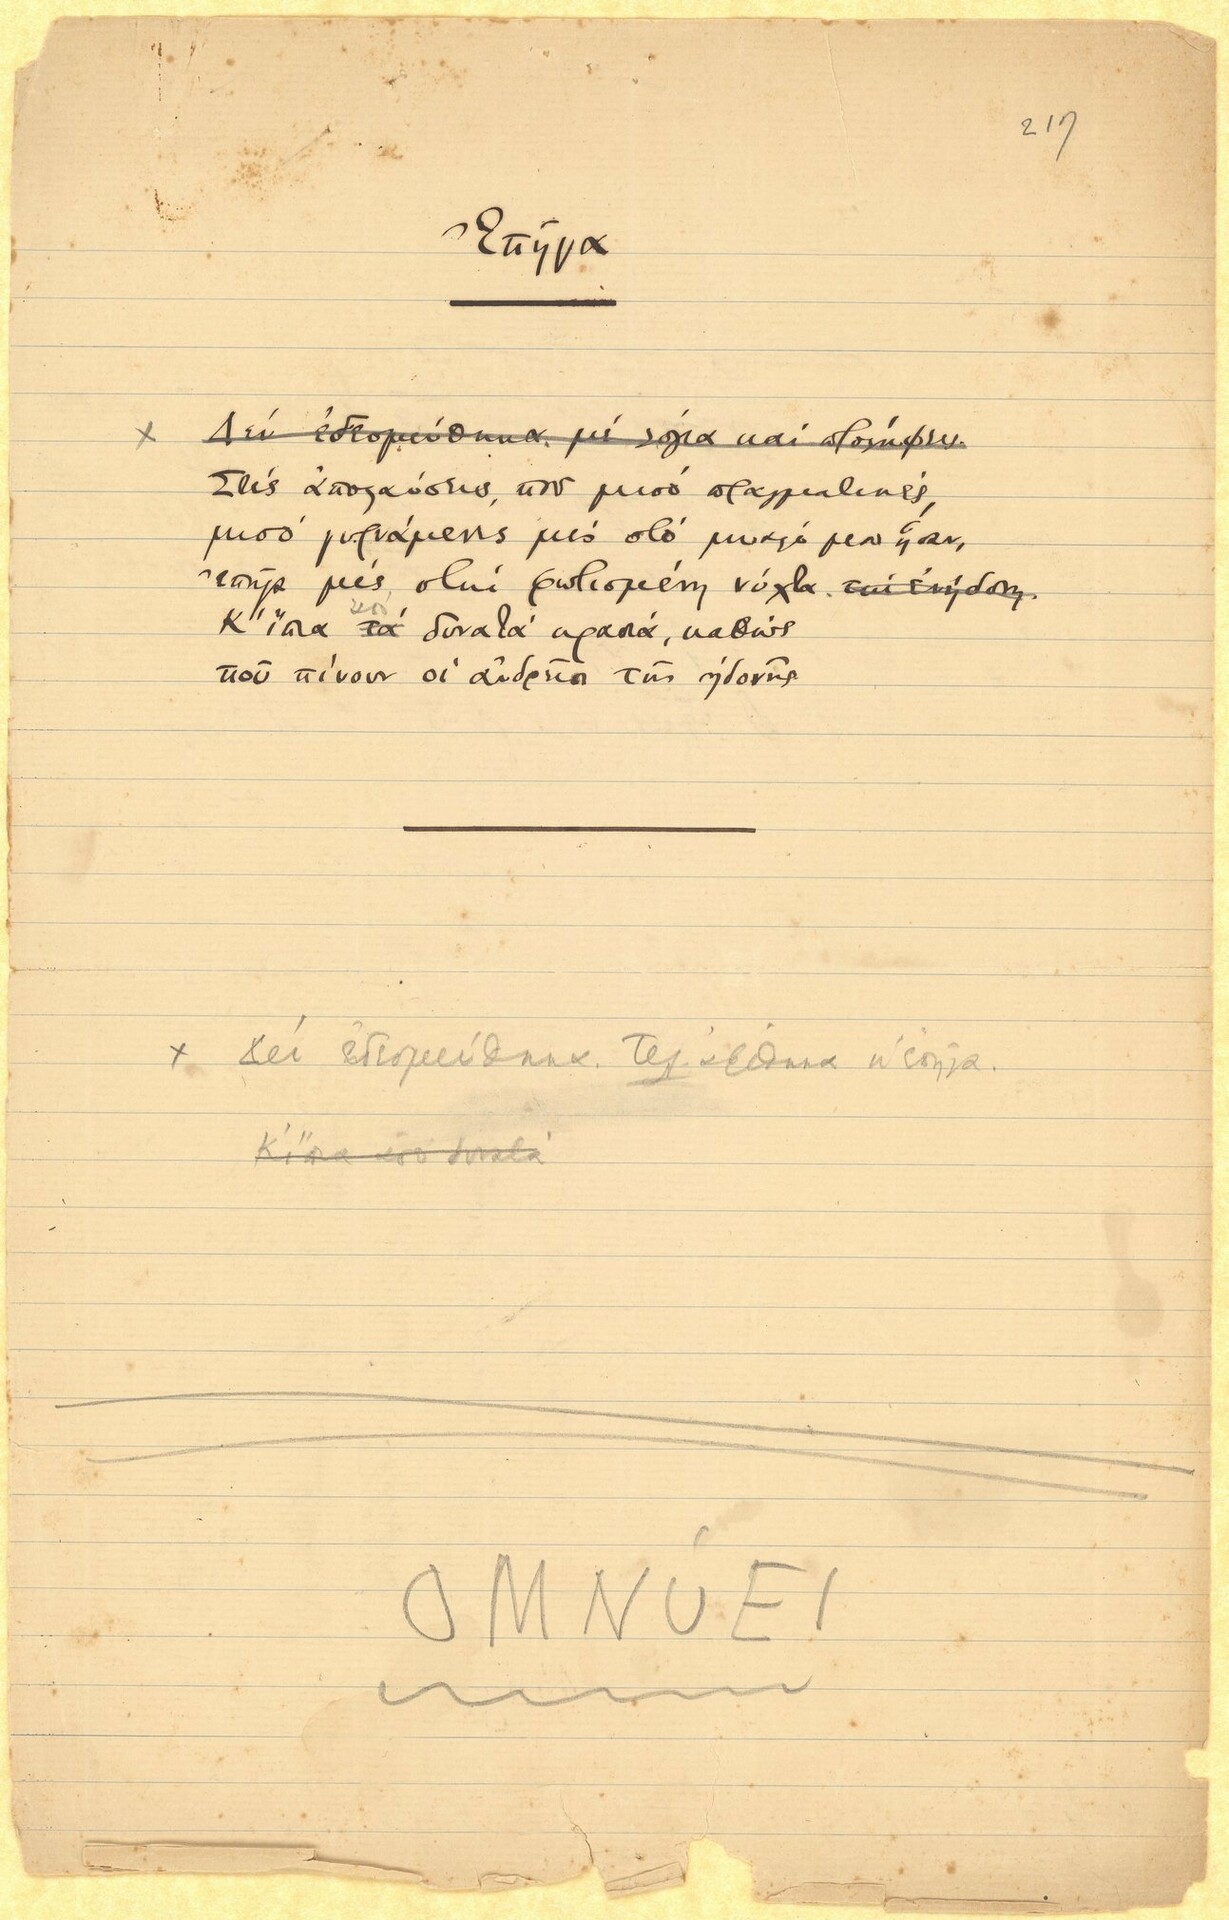 217
Ἐπῆγα
× Δέν ἐδεσμεύθηκα. μέ λόγια καί προλήψεις.
Στές ἀπολαύσεις, πού μισό πραγματικές,
μισό γυρνάμενες μές στό μυαλό μου ἦσαν,
ἐπῆγα μές στήν φωτισμένη νύχτα. τήν ἐνήδονη.
από
Κ' ἤπια τά δυνατά κρασιά, καθώς
πού πίνουν οἱ ἀνδρεῖοι τῆς ἡδονῆς
× Δέν ἐδεσμεύθηκα. Τελ. ἀφέθηκα κ' ἐπῆγα.
Κ' ἤπια από δυνατά
ΟΜΝΎΕΙ